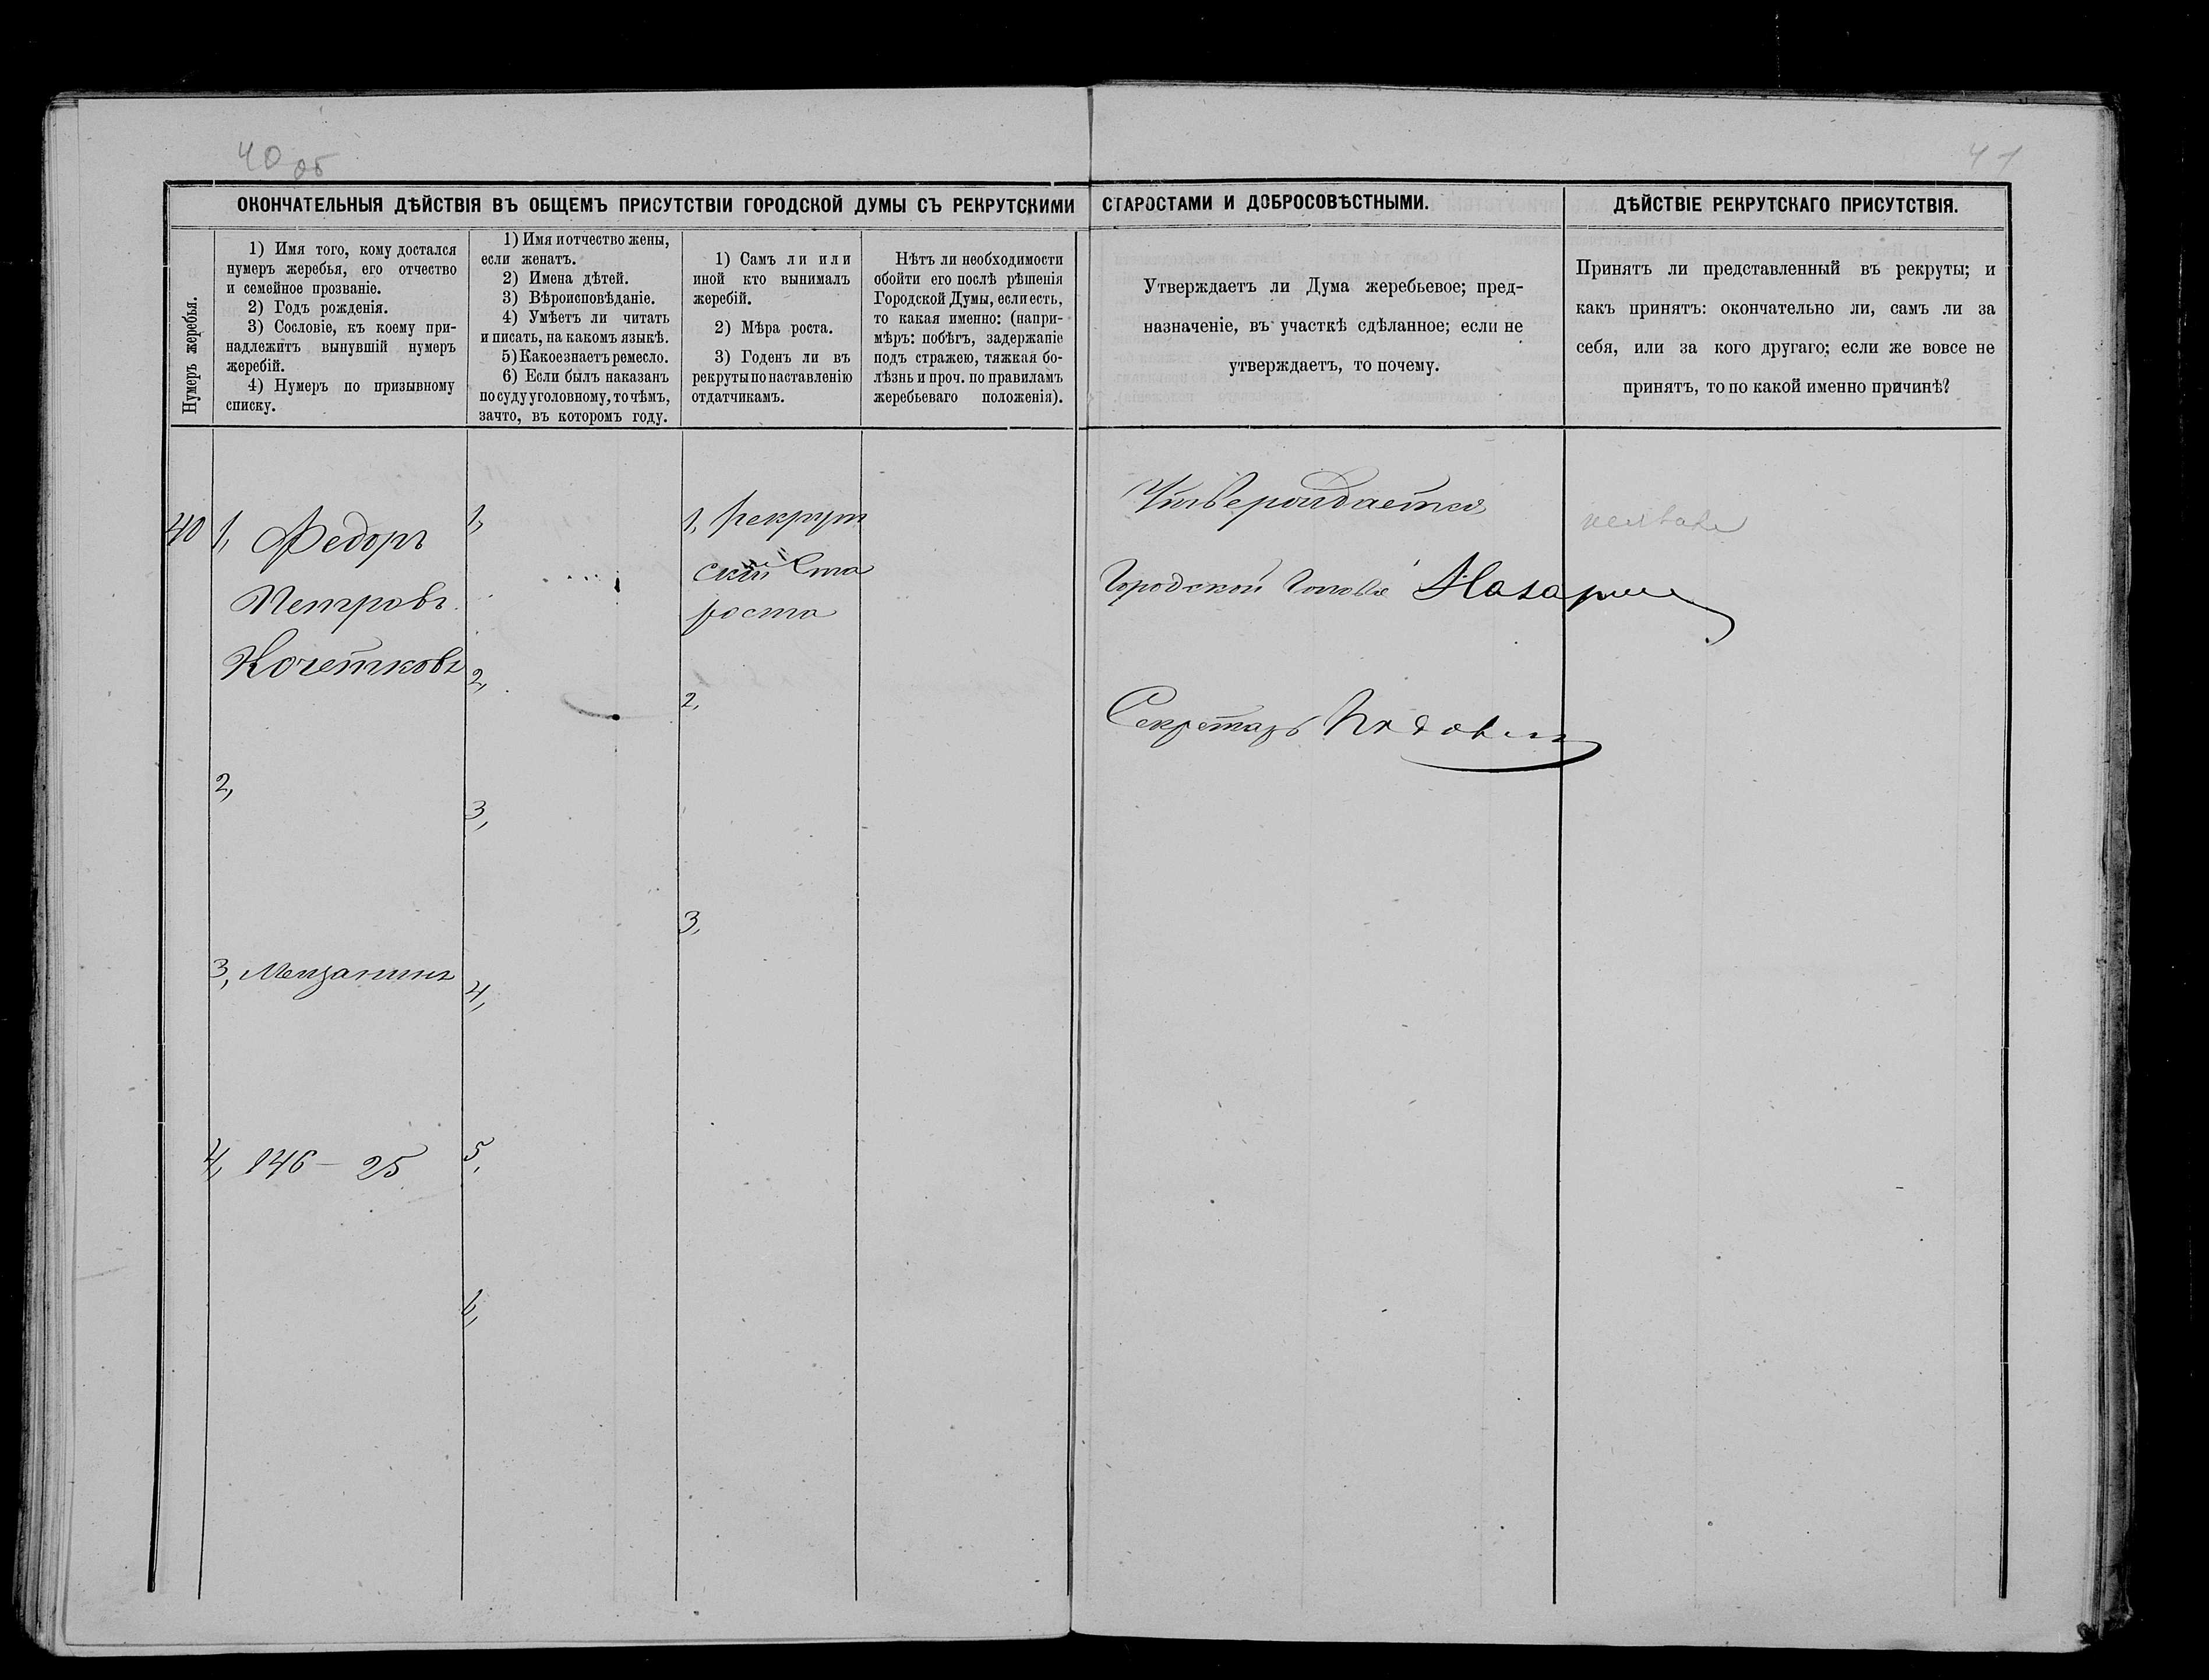 40 об
41
ОКОНЧАТЕЛЬНЫЯ ДѢЙСТВІЯ ВЪ ОБЩЕМЪ ПРИСУТСТВІИ ГОРОДСКОЙ ДУМЫ СЪ РЕКРУТСКИМИ СТАРОСТАМИ И ДОБРОСОВѢСТНЫМИ.
ДѢЙСТВІЕ РЕКРУТСКАГО ПРИСУТСТВІЯ.
Нумеръ жеребья.
1) Имя того, кому достался
нумеръ жеребья, его отчество
и семейное прозваніе.
2) Годъ рожденія.
3) Сословіе, къ коему при-
надлежитъ вынувшій нумеръ
жеребій.
4) Нумеръ по призывному
списку.
1) Имя и отчество жены,
если женатъ.
2) Имена дѣтей.
3) Вѣроисповѣданіе.
4) Умѣетъ ли читать
и писать, на какомъ языкѣ.
5) Какое знаетъ ремесло.
6) Если былъ наказанъ
по суду уголовному, то чѣмъ,
за что, въ которомъ году.
1) Самъ ли или
иной кто вынималъ
жеребій.
2) Мѣра роста.
3) Годенъ ли въ
рекруты по наставленію
отдатчикамъ.
Нѣтъ ли необходимости
обойти его послѣ рѣшенія
Городской Думы, если есть,
то какая именно: (напри-
мѣръ: побѣгъ, задержаніе
подъ стражею, тяжкая бо-
лѣзнь и проч. по правиламъ
жеребьеваго положенія).
Утверждаетъ ли Дума жеребьевое; пред-
назначеніе, въ участкѣ сдѣланное; если не
утверждаетъ, то почему.
Принятъ ли представленный въ рекруты; и
какъ принятъ: окончательно ли, самъ ли за
себя, или за кого другаго; если же вовсе не
принятъ, то по какой именно причинѣ?
40
1, Федоръ
Петровъ
Кочетковъ
2,
3, Мещанинъ
4, 146 – 25
1,
2,
3,
4,
5,
6,
1, Рекрут
скій Ста
роста
2,
3,
Утверждается
Городской Голова
Секретарь